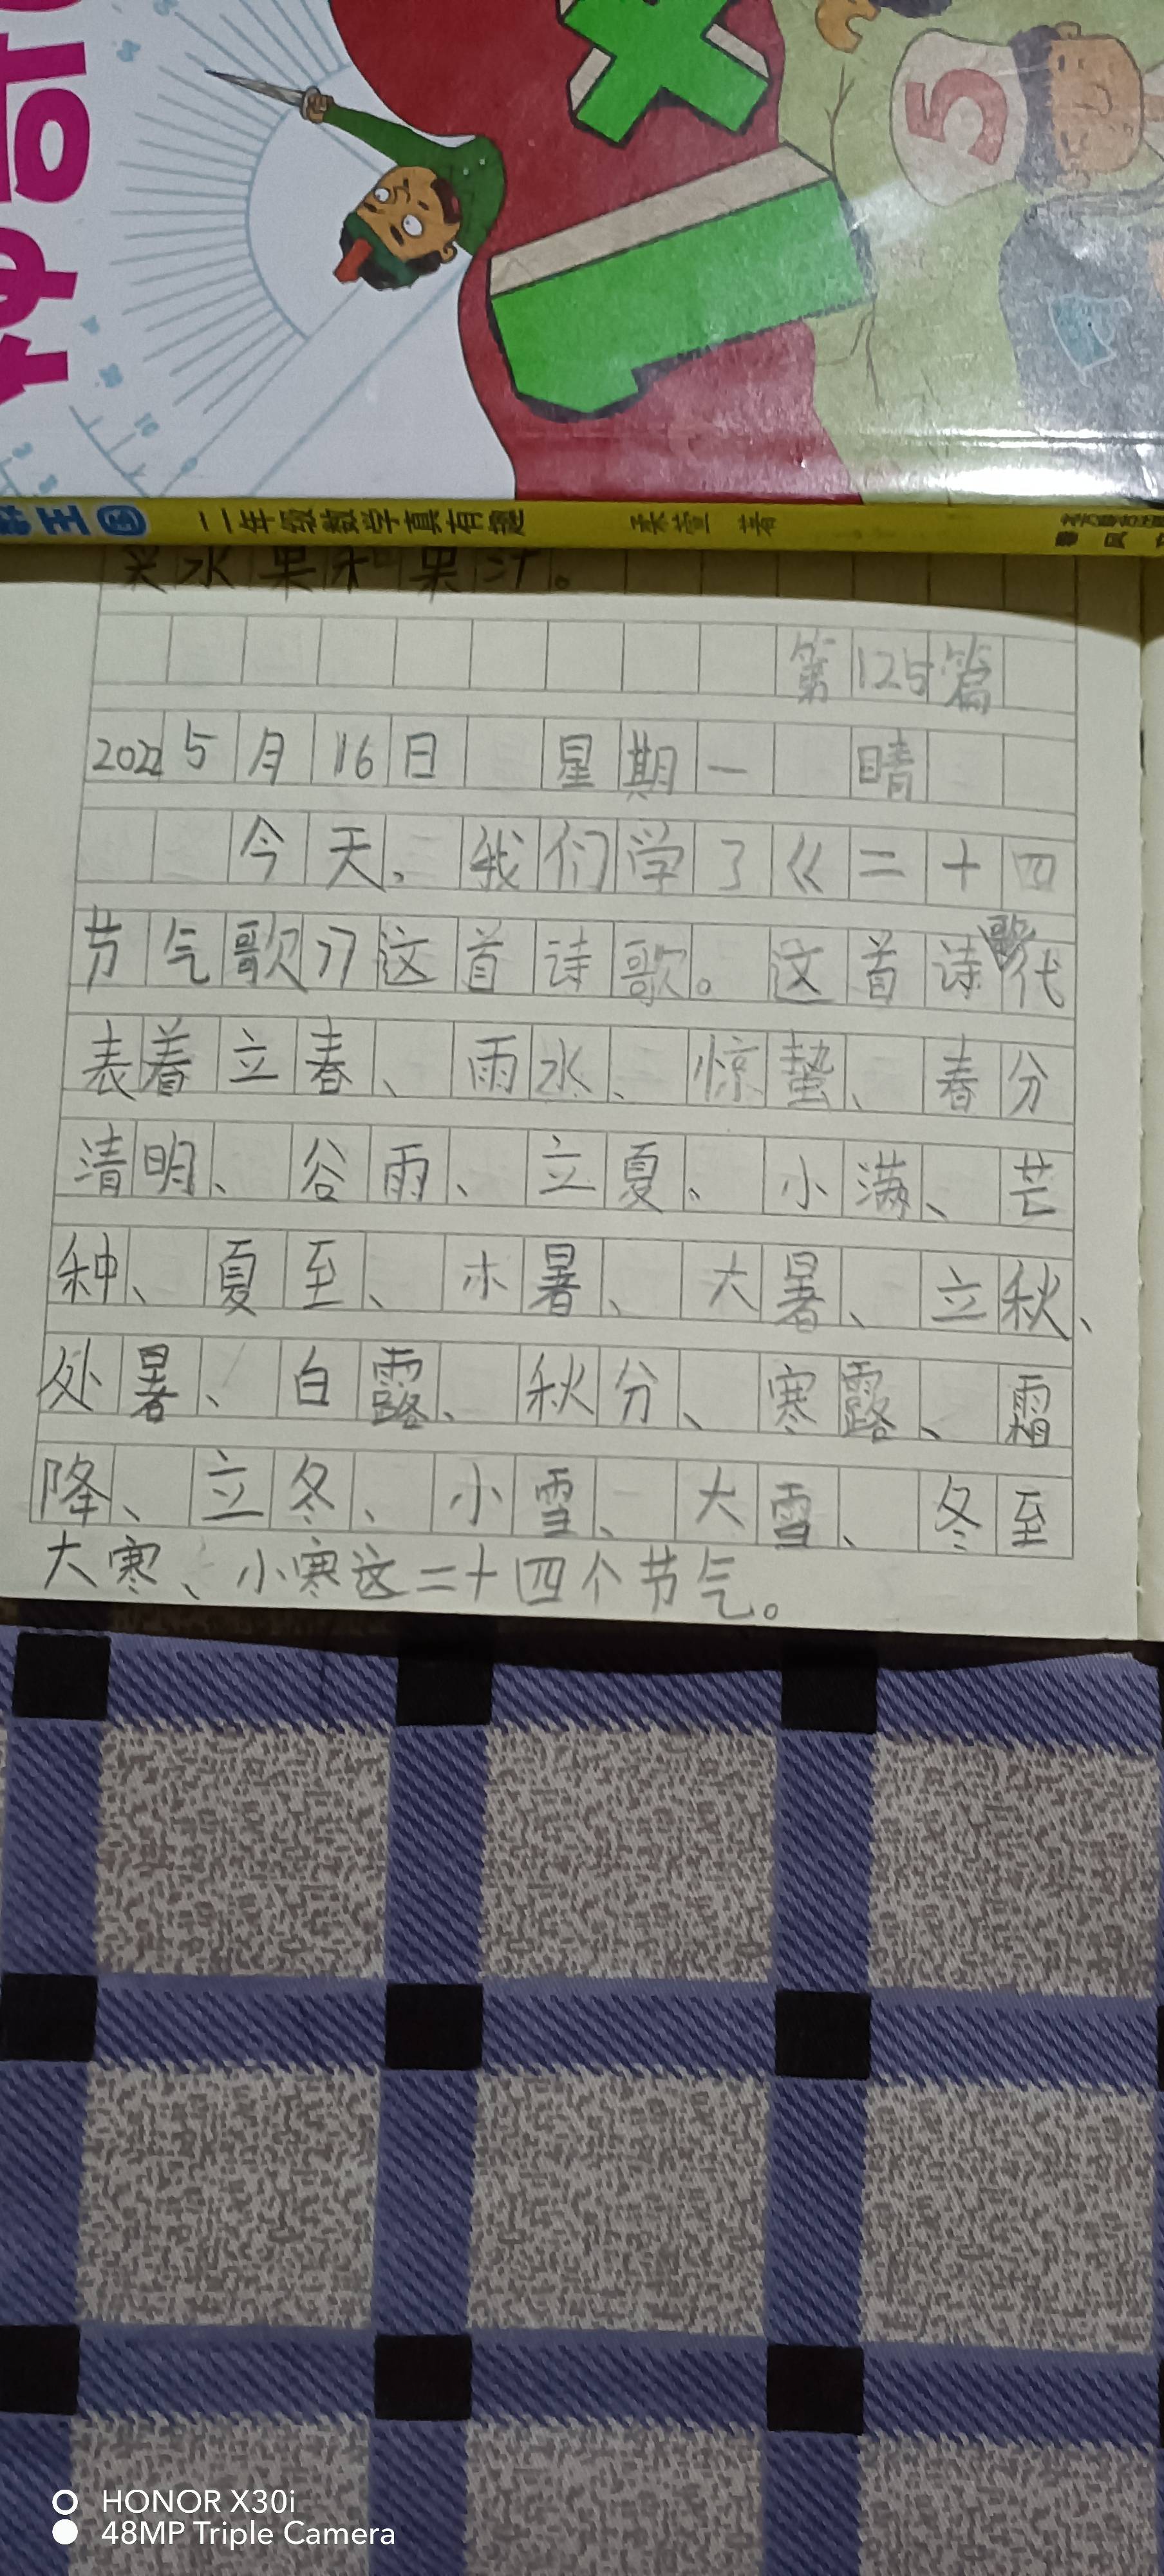 5
10
二年级数学真有趣
著
水果和果汁。
第125篇
2022 5月16日 星期一 晴
今天，我们学了《二十四
节气歌》这首诗歌。这首诗歌代
表着立春、雨水、惊蛰、春分
清明、谷雨、立夏、小满、芒
种、夏至、小暑、大暑、立秋、
处暑、白露、秋分、寒露、霜
降、立冬、小雪、大雪、冬至
大寒、小寒这二十四个节气。
HONOR X30i
48MP Triple Camera